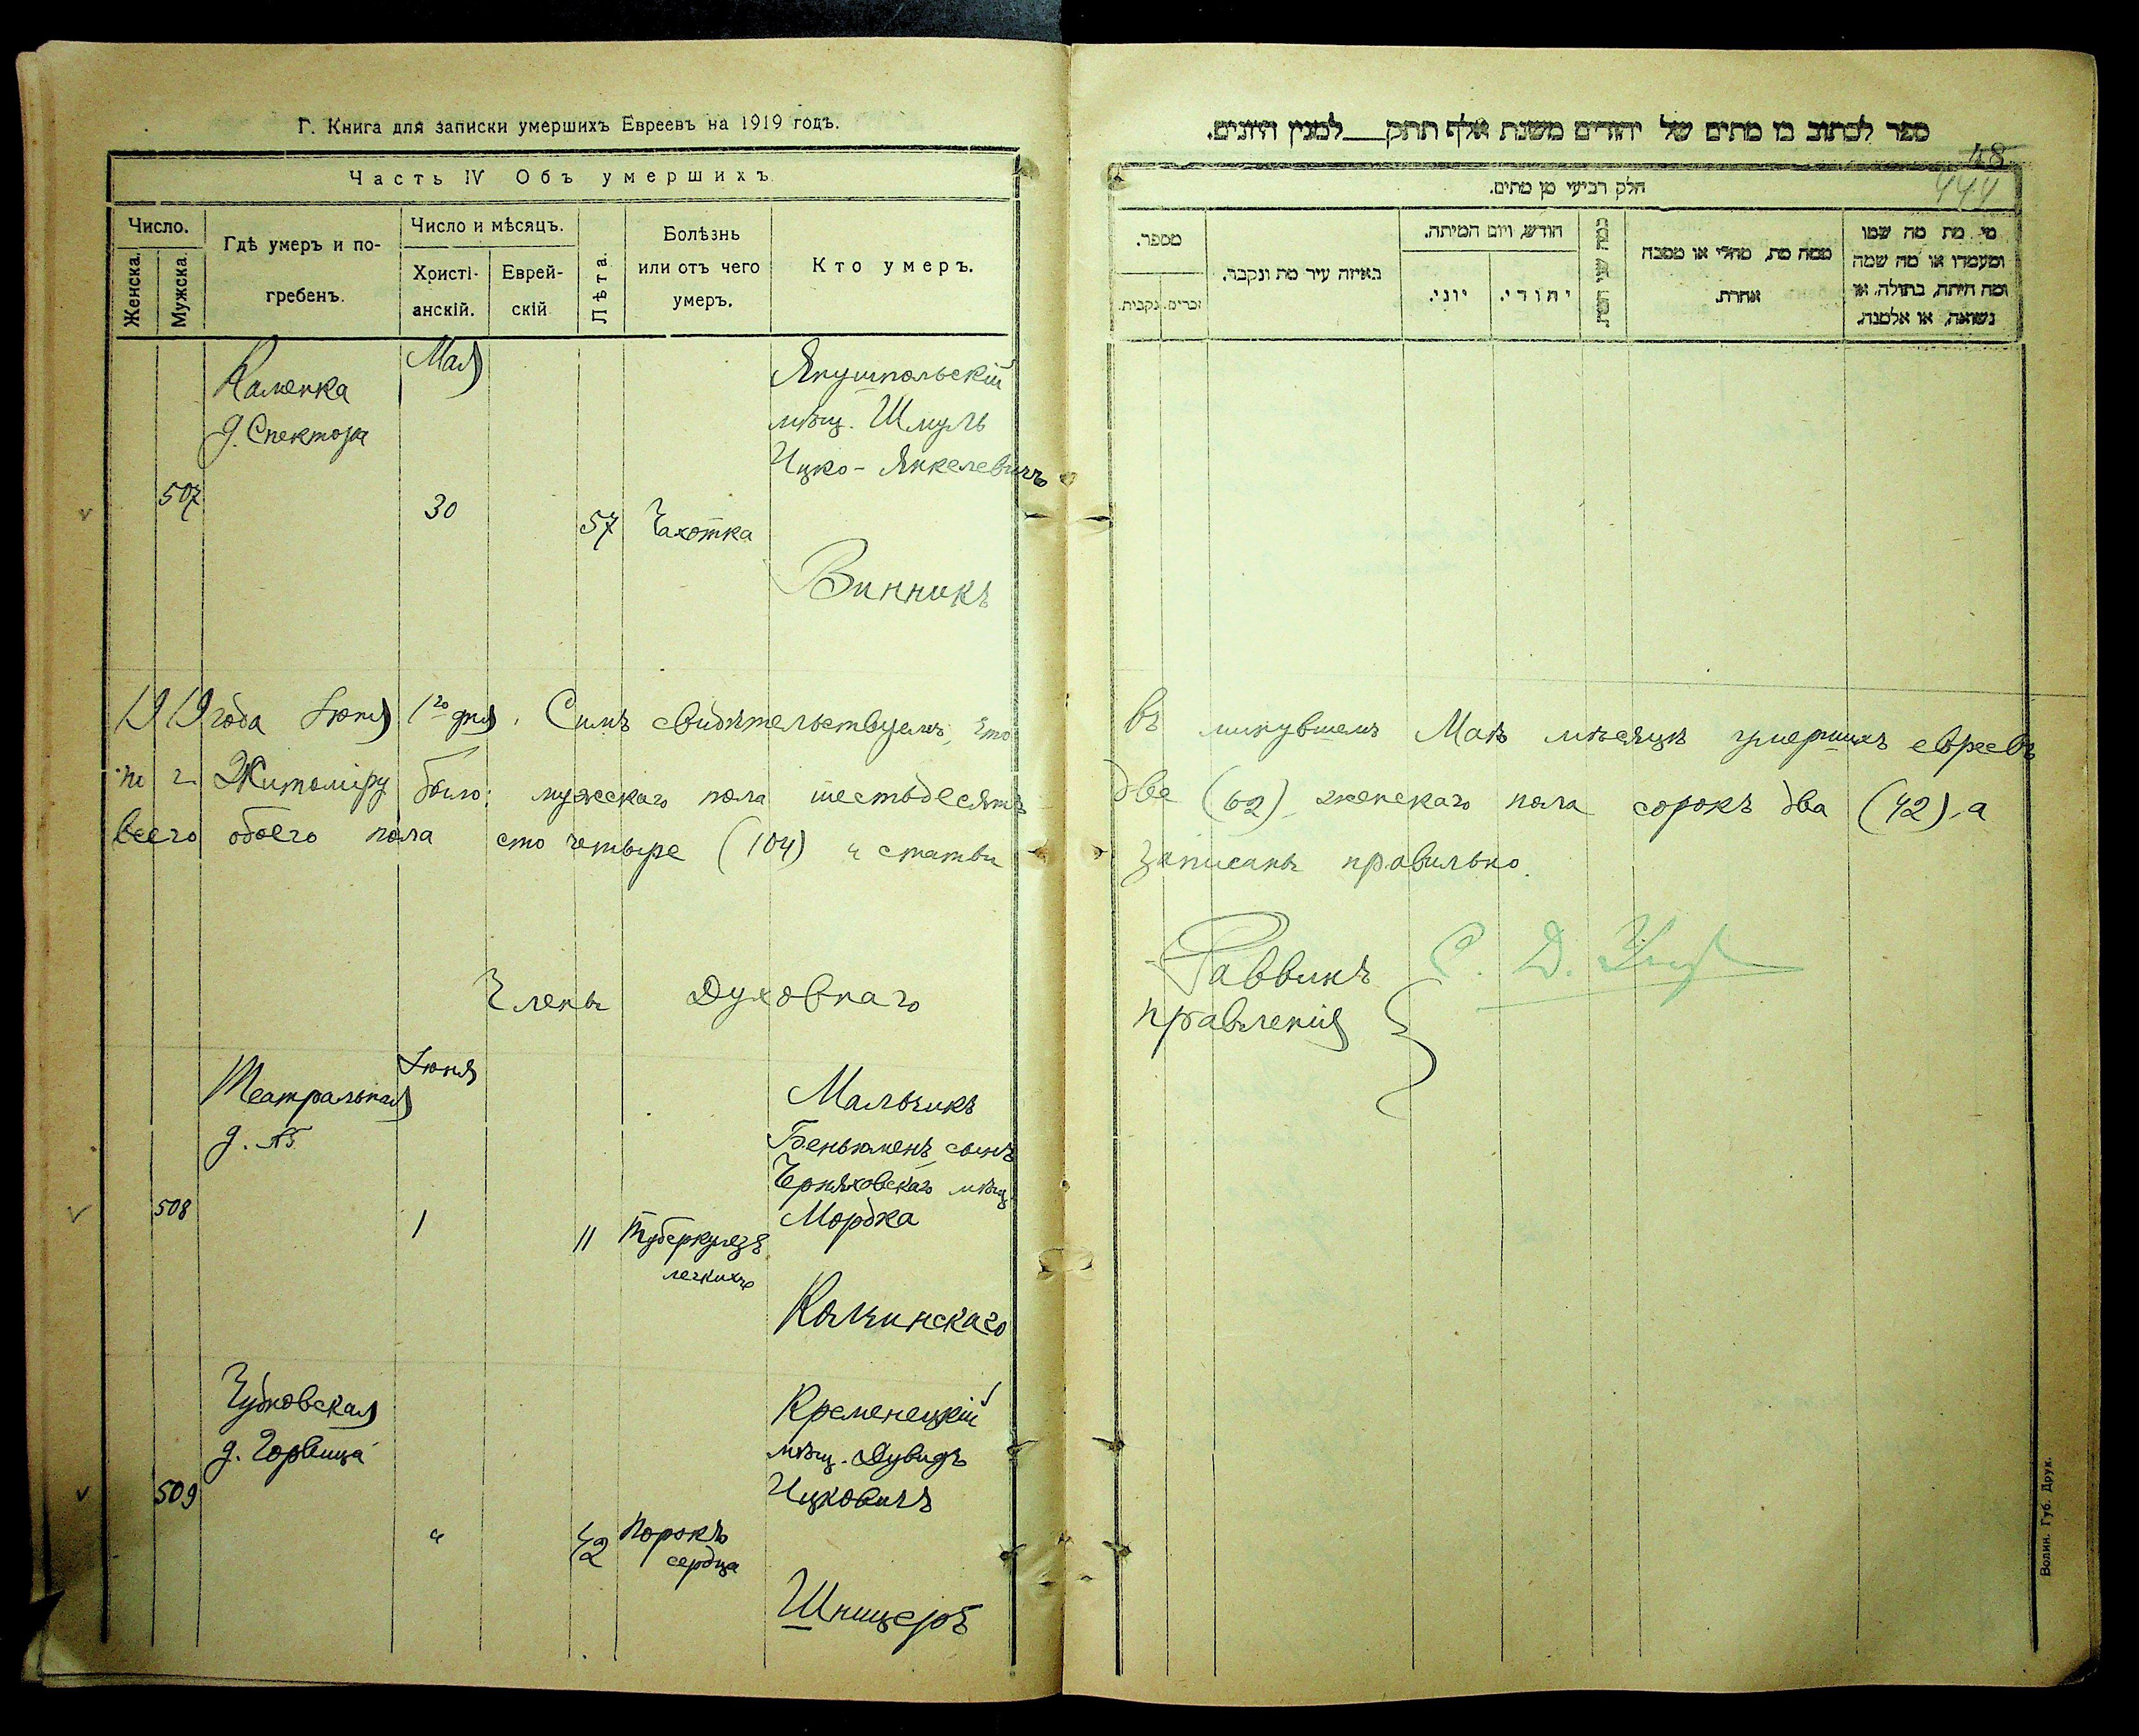 Г. Книга для записки умершихъ Евреевъ на 1919 годъ.
Часть IV Объ умершихъ
Число.
Женска.
Мужска.
Гдѣ умеръ и по-
гребенъ.
Число и мѣсяцъ.
Христі-
анскій.
Еврей-
скій
Лѣта.
Болѣзнь
или отъ чего
умеръ.
Кто умеръ.
Мая
Каменка
д. Спектора
507
30
57
Чахотка
Янушпольскій
мѣщ. Шмуль
Ицко-Янкелевичъ
Винникъ
1919 года Іюня 1го дня. Симъ свидѣтельствуемъ, что
по г. Житоміру было: мужескаго пола шестьдесятъ
всего обоего пола сто четыре (104) и статьи
Члены Духовнаго
Іюня
Театральная
д. №
508
1
11
Туберкулезъ
легкихъ
Мальчикъ
Беньюменъ сынъ
Черняховскаго мѣщ.
Мордка
Колчинскаго
Чудновская
д. Горвица
509
"
42
Порокъ
сердца
Кременецкій
мѣщ. Дувидъ
Ицковичъ
Шницеръ
ספר לכתוב בו מתים של יהודים משנת אלף תתק___למנין היונים.
48
444
חלק רביעי מן מתים.
מספר.
זכרים.
נקבות.
באיזה עיר מת ונקבר.
חודש, ויום המיתה.
יוני.
יהודי.
ממה מת, מחלי או מסבה
אחרת.
מי מת מה שמו
ומעמדו או מה שמה
ומה היתה, בתולה, או
נשואה, או אלמנה.
въ минувшемъ Маѣ мѣсяцѣ умершихъ евреевъ
две (62) женскаго пола сорокъ два (42), а
записаны правильно.
Раввинъ С. Д.
правленія
Волин. Губ. Друк.